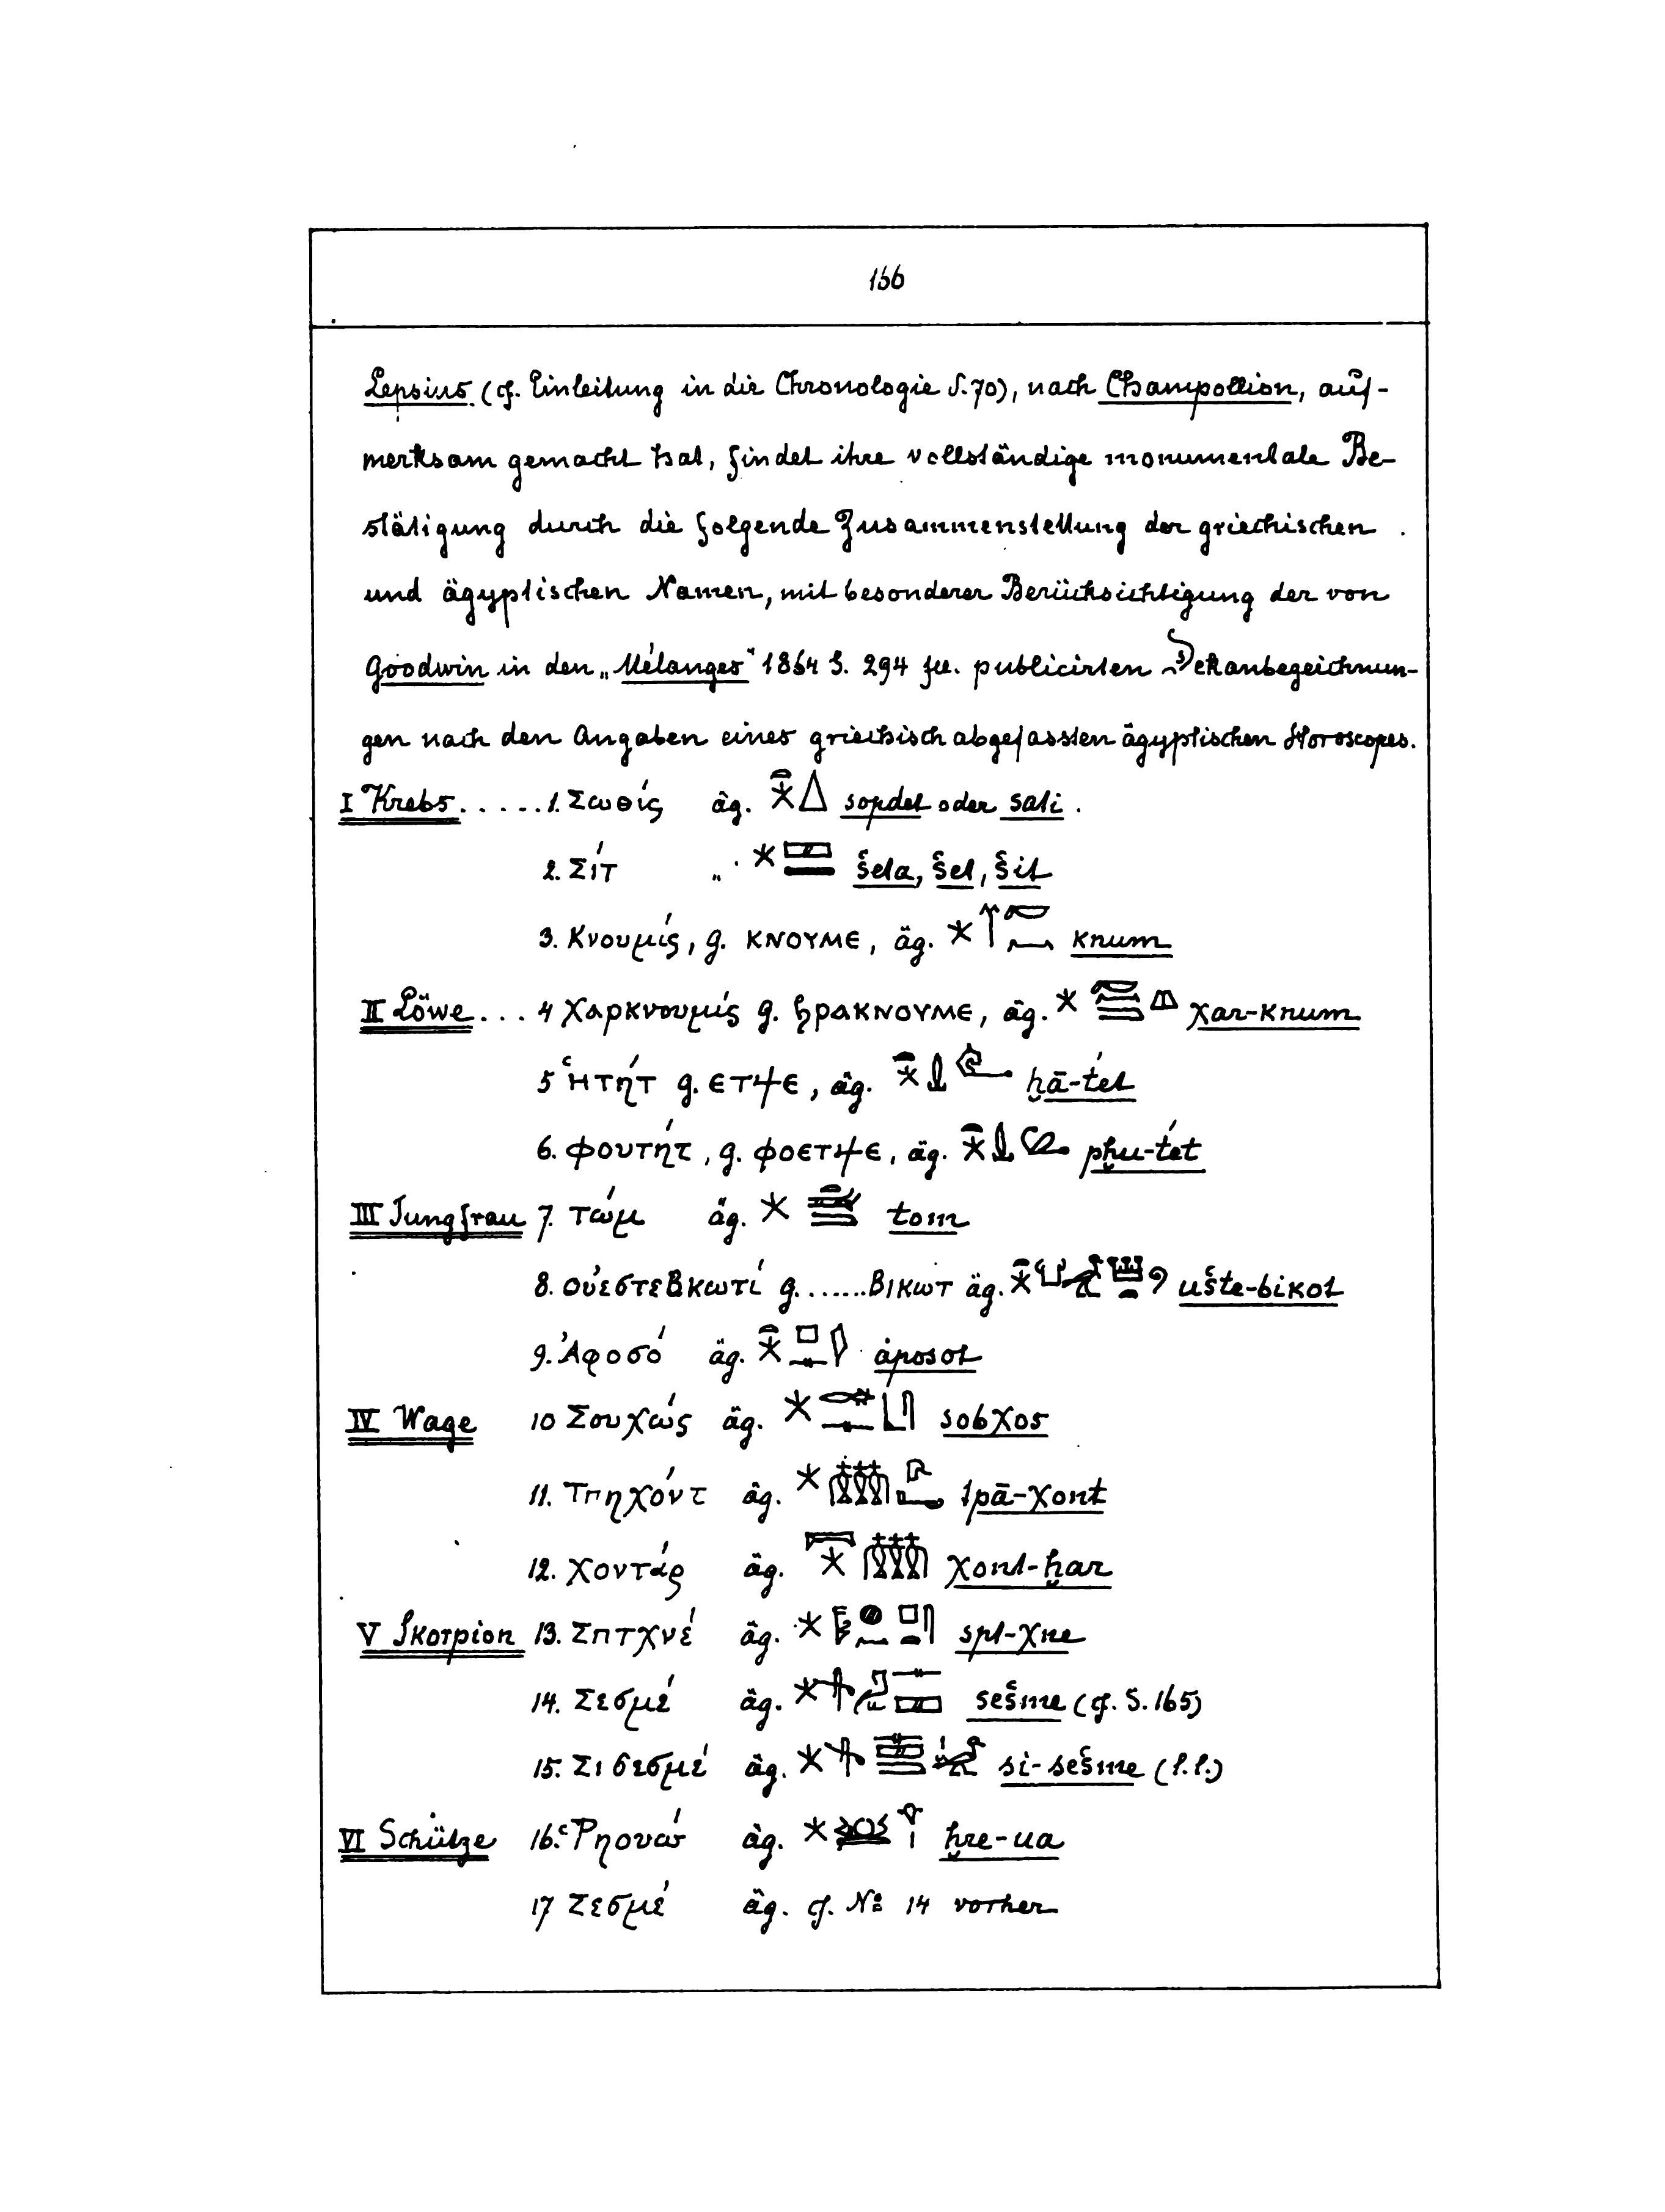 166
Lepsius (cf. Einleitung in die Chronologie S. 70), nach Champollion, auf-
merksam gemacht hat, findet ihre vollständige monumentale Be-
stätigung durch die folgende Zusammenstellung der griechischen
und ägyptischen Namen, mit besonderer Berücksichtigung der von
Goodwin in den „Mélanges" 1864 S. 294 fll. publicirten Dekanbezeichnun-
gen nach den Angaben eines griechisch abgefassten ägyptischen Horoscopes.
I Krebs.....1. Σωθίς äg. sopdet oder sati.
2. Σίτ „ šeta, šet, šit
3. Κνουμίς, g. ΚΝΟΥΜΕ, äg. knum
II Löwe... 4 Χαρκνουμίς g. ϩΡΑΚΝΟΥΜΕ, äg. χar-knum
5 Ἡτήτ g. ΕΤΨΕ, äg. ḫā-tét
6. Φουτήτ, g. ΦΟΕΤΨΕ, äg. pḫu-tét
III Jungfrau 7. Τώμ äg. tom
8. Οὐεστεβκωτί g.......ΒΙΚΩΤ äg. ušte-bikot
9. Ἀφοσό äg. aposot
IV Wage 10 Σουχώς äg. sobχos
11. Τπηχόντ äg. tpā-χont
12. Χοντάρ äg. χont-ḫar
V Skorpion 13. Σπτχνέ äg. spt-χne
14. Σεσμέ äg. sešme (cf. S. 165)
15. Σισεσμέ äg. si-sešme (l.l.)
VI Schütze 16. Ῥηουώ äg. ḫre-ua
17 Σεσμέ äg. cf. No 14 vorher